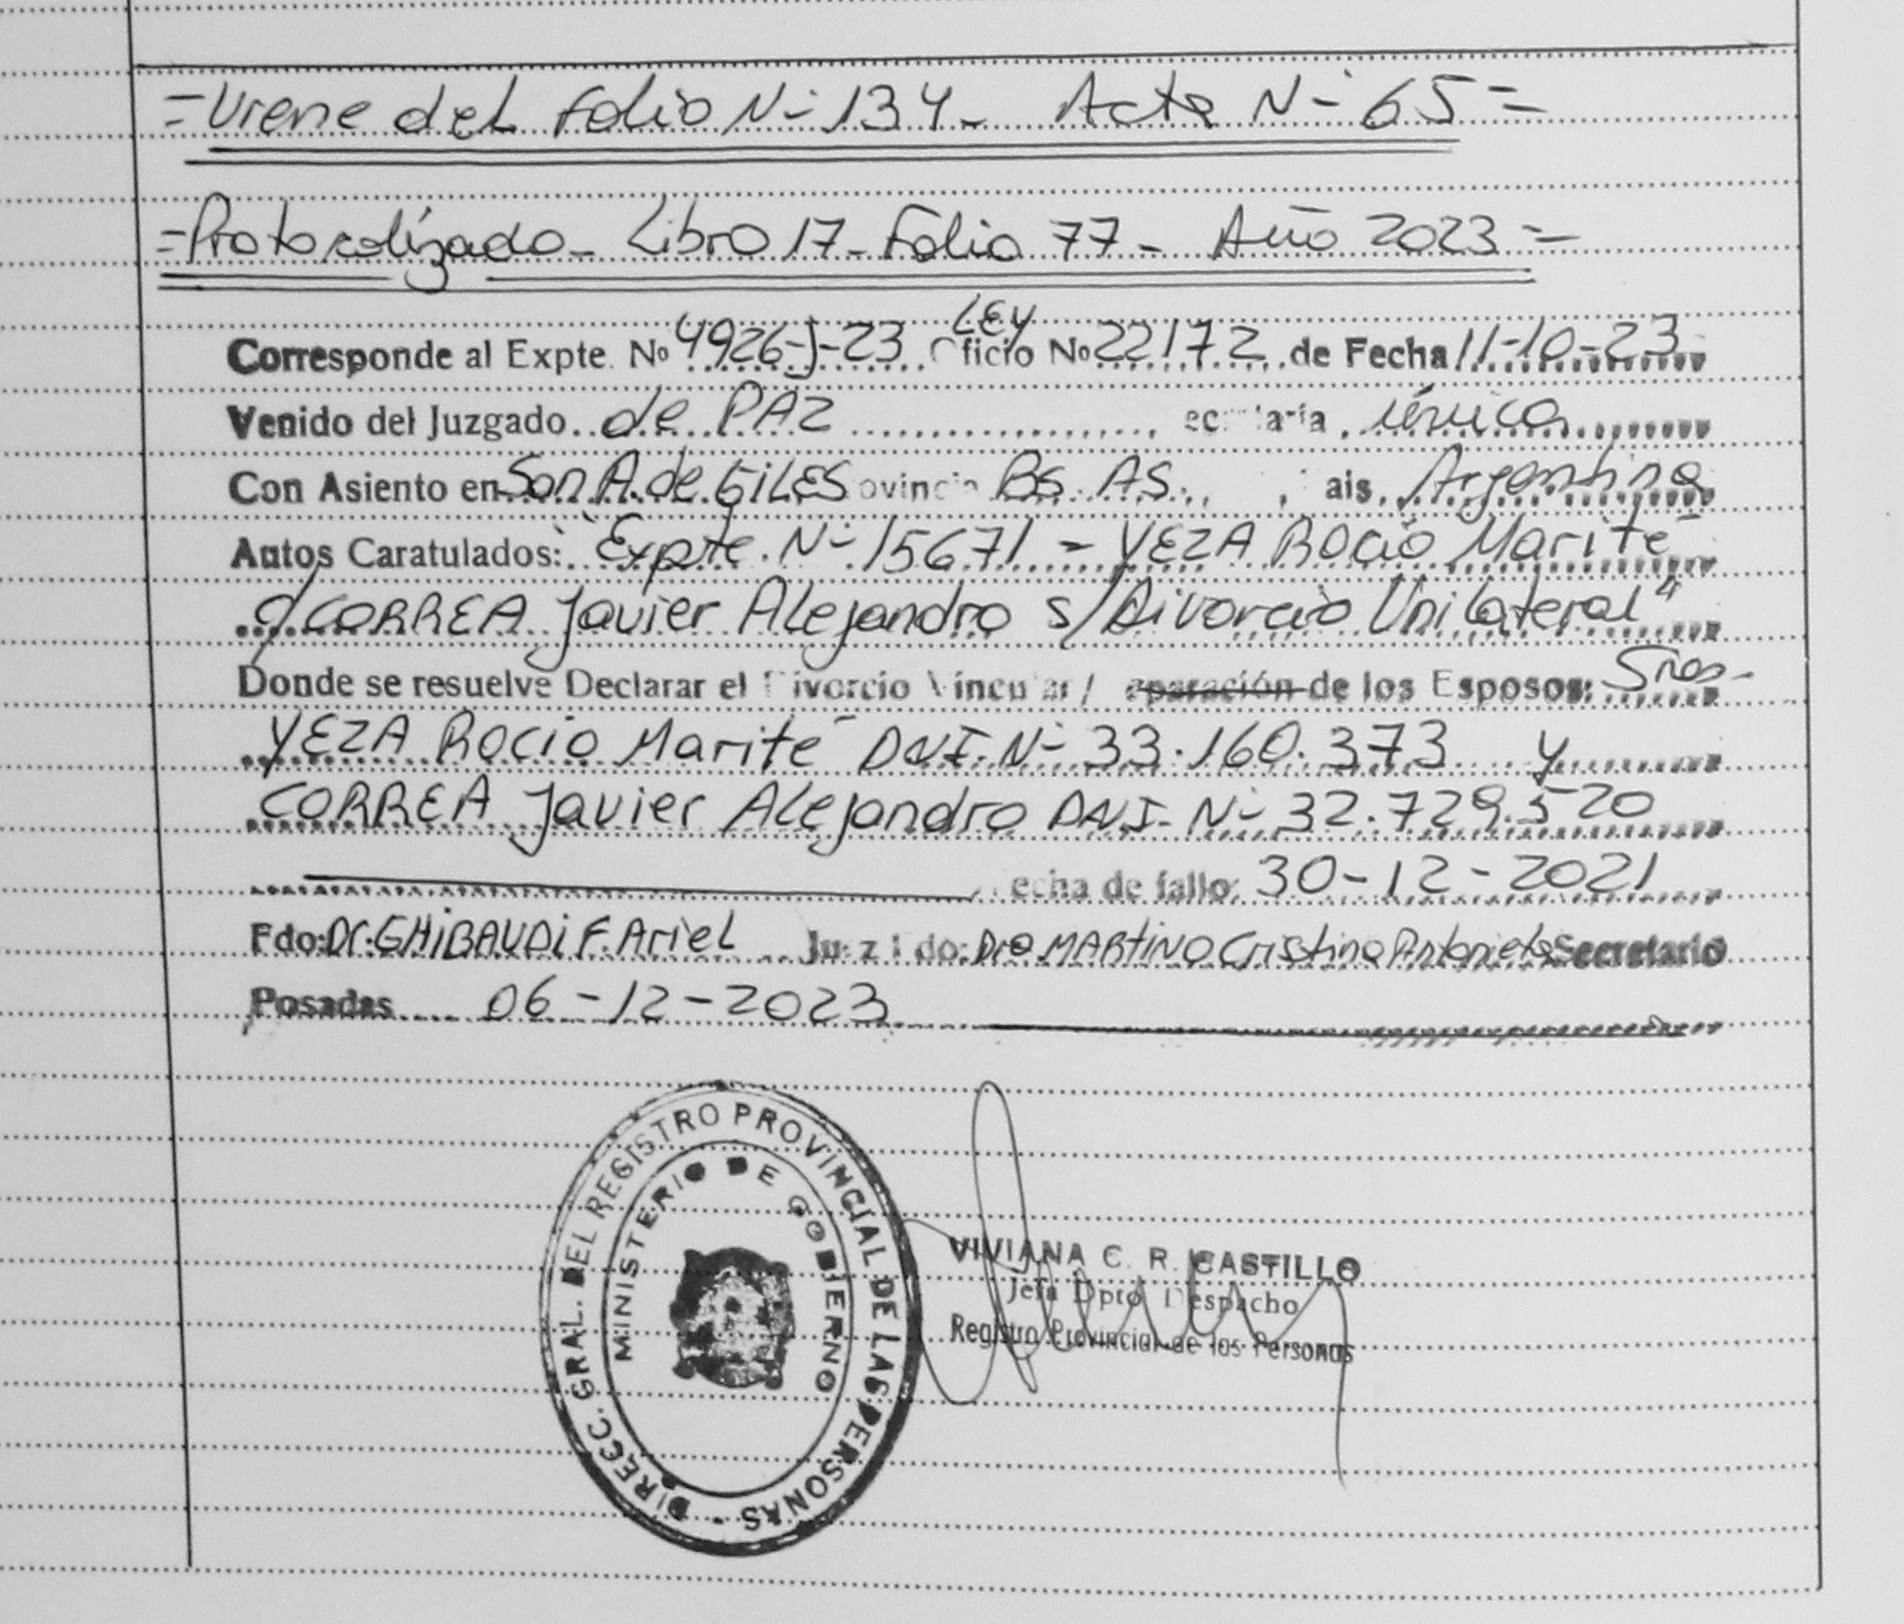 =Viene del Folio N- 134- Acta N- 65=
=Protocolizado- Libro 17- Folio 77- Año 2023=
LEY
Corresponde al Expte. Nº 4926-J-23 Oficio Nº 22172 de Fecha 11-10-23
Venido del Juzgado de PAZ ecretaria única
Con Asiento en San A. de GILES ovincia BS. AS., ais Argentina
Autos Caratulados: "Expte. N- 15671 - YEZA ROCIO Marité
c/CORREA Javier Alejandro s/Divorcio Unilateral"
Donde se resuelve Declarar el Divorcio Vincular / eparación de los Esposos: Sres-
YEZA ROCIO Marité DNI. N- 33.160.373 y
CORREA Javier Alejandro DNI- N- 32.729.520
echa de fallo: 30-12-2021
Fdo: Dr. GHIBAUDI F. Ariel Juez Fdo: Dra MARTINO Cristina Antonieta Secretario
Posadas 06-12-2023
DIRECC. GRAL. DEL REGISTRO PROVINCIAL DE LAS PERSONAS -
MINISTERIO DE GOBIERNO
VIVIANA C. R. CASTILLO
Jefa Dpto Despacho
Registro Provincial de las Personas